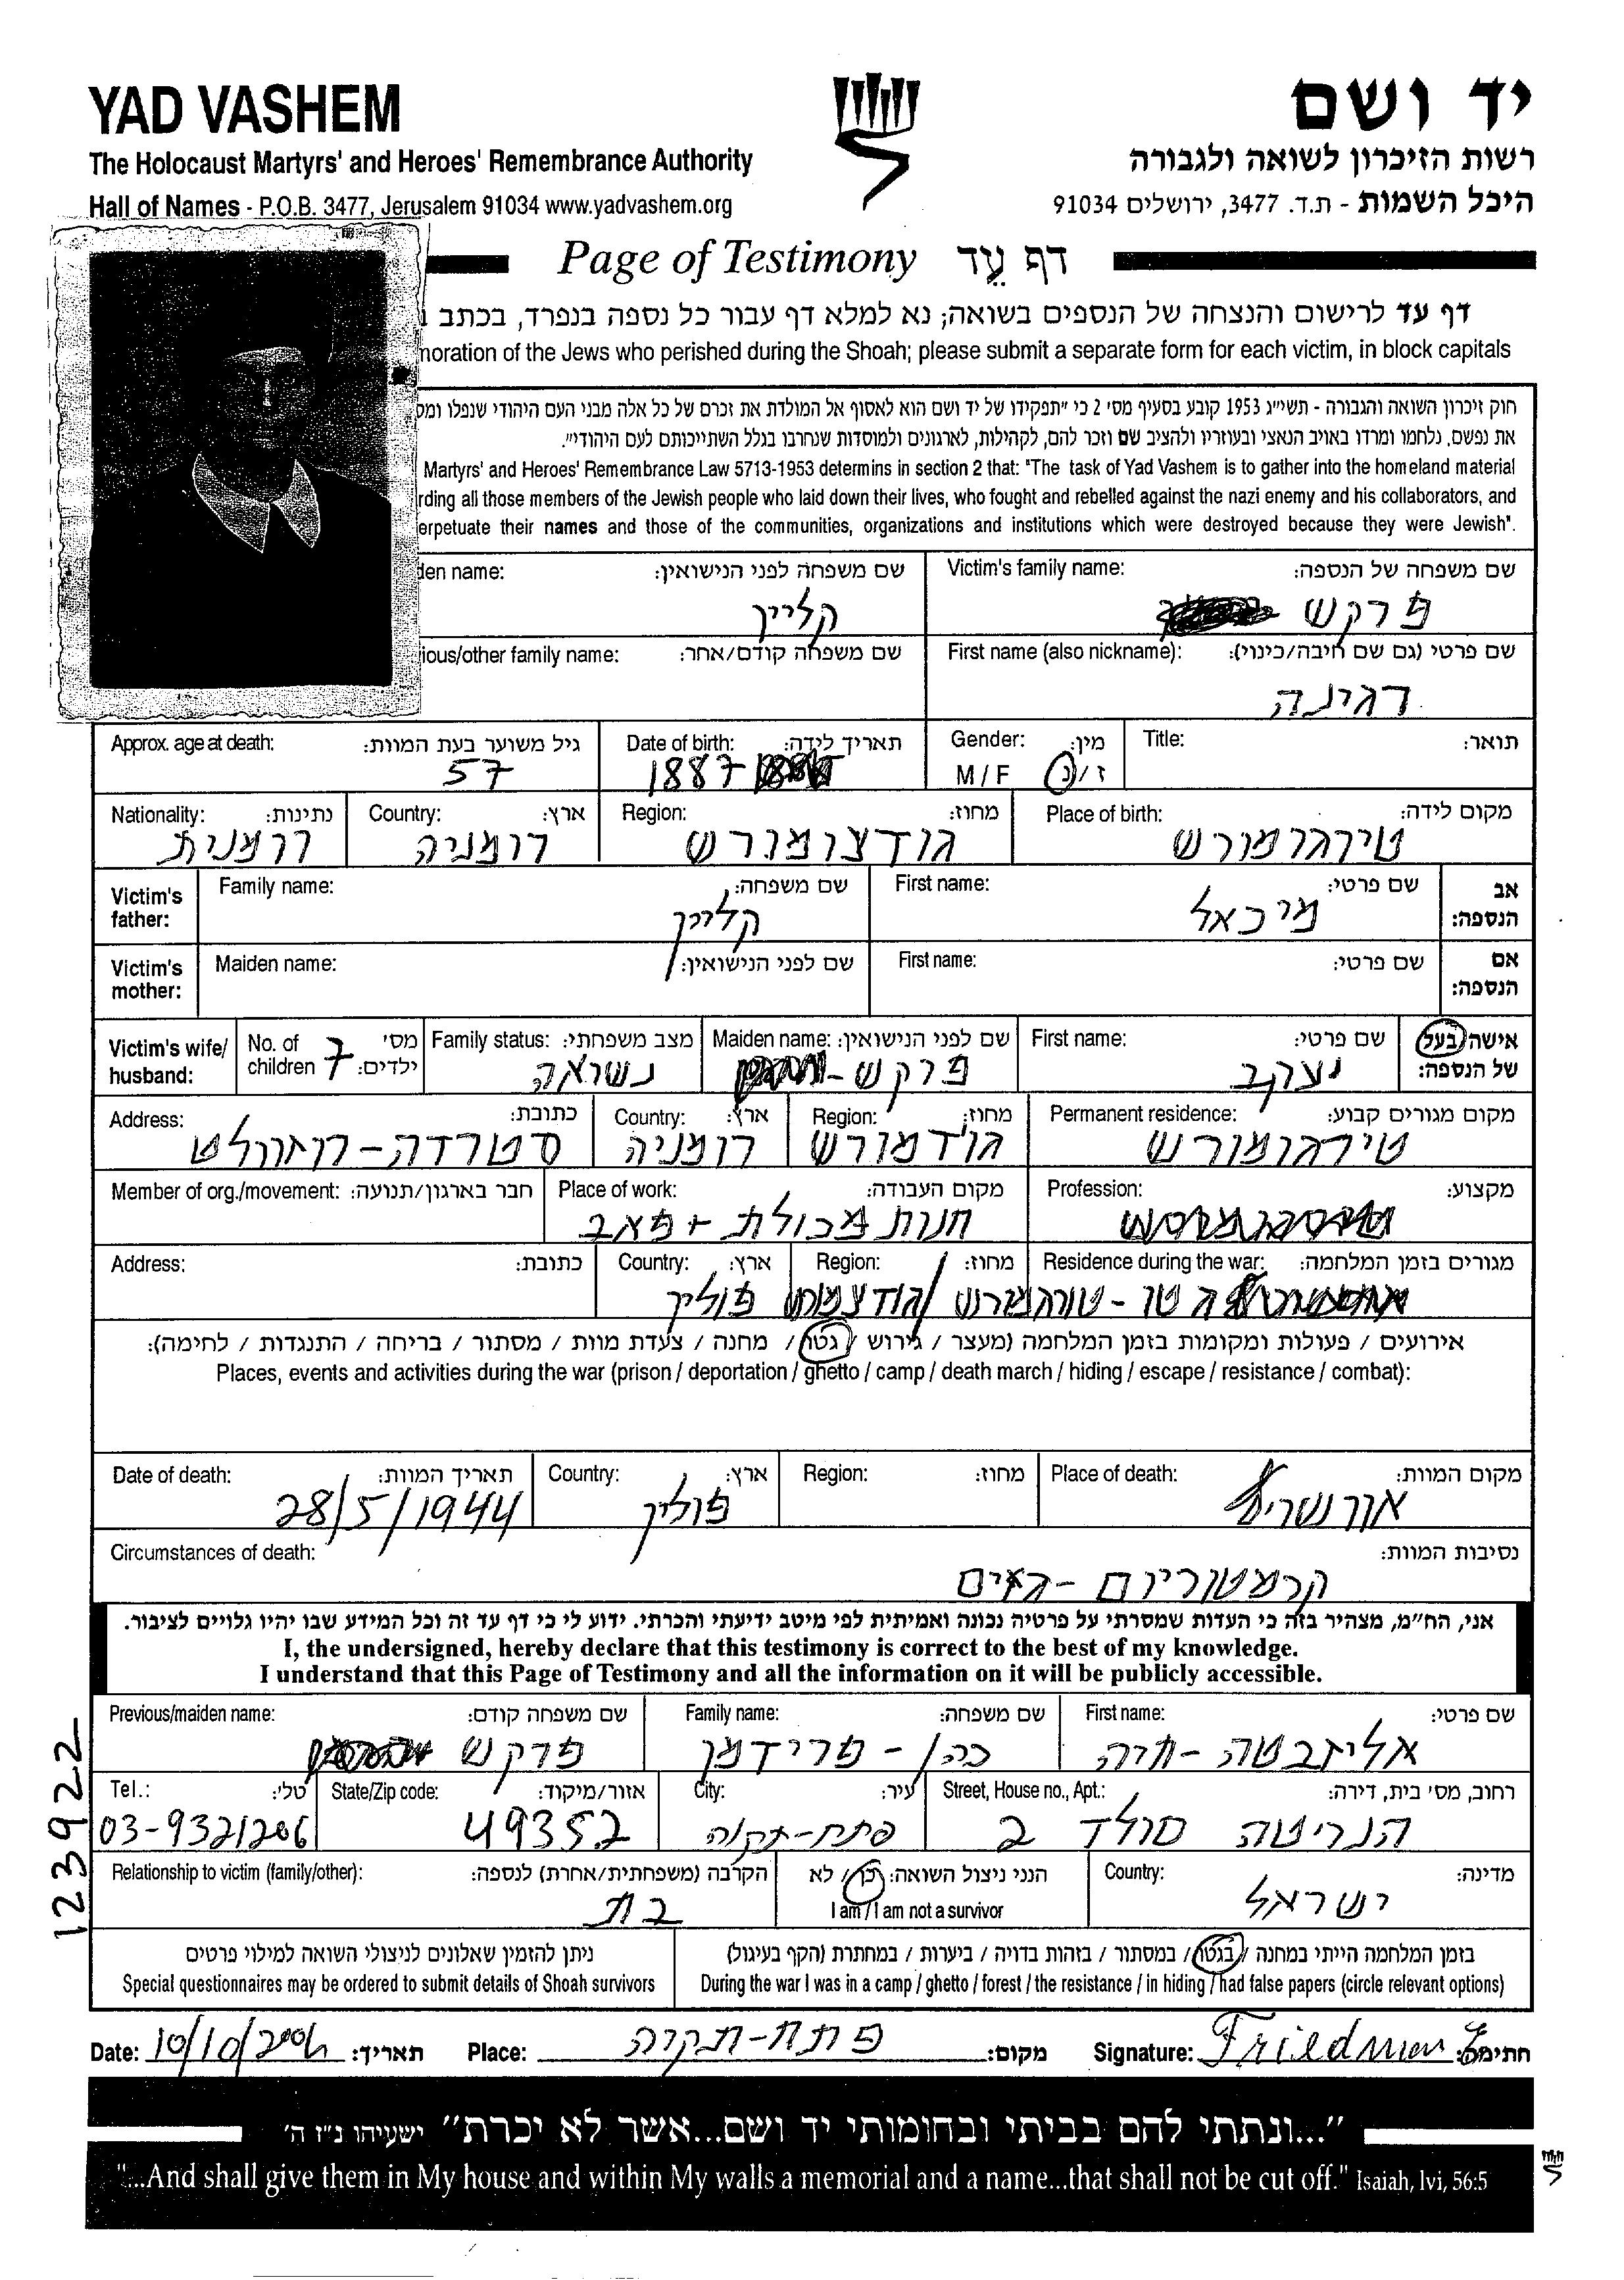 YAD VASHEM
יד ושם
The Holocaust Martyrs' and Heroes' Remembrance Authority
רשות הזיכרון לשואה ולגבורה
Hall of Names - P.O.B. 3477, Jerusalem 91034 www.yadvashem.org
היכל השמות - ת.ד. 3477, ירושלים 91034
Page of Testimony דף עֵד
דף עד לרישום והנצחה של הנספים בשואה; נא למלא דף עבור כל נספה בנפרד, בכתב
moration of the Jews who perished during the Shoah; please submit a separate form for each victim, in block capitals
חוק זיכרון השואה והגבורה - תשי״ג 1953 קובע בסעיף מס׳ 2 כי ״תפקידו של יד ושם הוא לאסוף אל המולדת את זכרם של כל אלה מבני העם היהודי שנפלו ומס
את נפשם, נלחמו ומרדו באויב הנאצי ובעוזריו ולהציב שם וזכר להם, לקהילות, לארגונים ולמוסדות שנחרבו בגלל השתייכותם לעם היהודי״.
Martyrs' and Heroes' Remembrance Law 5713-1953 determins in section 2 that: "The task of Yad Vashem is to gather into the homeland material
rding all those members of the Jewish people who laid down their lives, who fought and rebelled against the nazi enemy and his collaborators, and
erpetuate their names and those of the communities, organizations and institutions which were destroyed because they were Jewish".
Victim's family name: שם משפחה של הנספה:
פרקש
den name: שם משפחה לפני הנישואין:
קליין
First name (also nickname): שם פרטי (גם שם חיבה/כינוי):
רגינה
ious/other family name: שם משפחה קודם/אחר:
Title: תואר:
Gender: מין:
M / F ז / נ
Date of birth: תאריך לידה:
1887
Approx. age at death: גיל משוער בעת המוות:
57
Place of birth: מקום לידה:
טירגומורש
Region: מחוז:
גודצומורש
Country: ארץ:
רומניה
Nationality: נתינות:
רומנית
Victim's father: אב הנספה:
First name: שם פרטי:
מיכאל
Family name: שם משפחה:
קליין
Victim's mother: אם הנספה:
First name: שם פרטי:
Maiden name: שם לפני הנישואין:
Victim's wife/ husband: אישה/בעל של הנספה:
First name: שם פרטי:
יעקב
Maiden name: שם לפני הנישואין:
פרקש
Family status: מצב משפחתי:
נשואה
No. of children מס׳ ילדים:
7
Permanent residence: מקום מגורים קבוע:
טירגומורש
Region: מחוז:
גודמורש
Country: ארץ:
רומניה
Address: כתובת:
סטרדה - רוזוולט
Profession: מקצוע:
Place of work: מקום העבודה:
חנות מכולת + פאב
Member of org./movement: חבר בארגון/תנועה:
Residence during the war: מגורים בזמן המלחמה:
גטו - טורגמורש
Region: מחוז:
Country: ארץ:
פולין
Address: כתובת:
אירועים / פעולות ומקומות בזמן המלחמה (מעצר / גירוש / גטו / מחנה / צעדת מוות / מסתור / בריחה / התנגדות / לחימה):
Places, events and activities during the war (prison / deportation / ghetto / camp / death march / hiding / escape / resistance / combat):
Place of death: מקום המוות:
Region: מחוז:
Country: ארץ:
פולין
Date of death: תאריך המוות:
28/5/1944
Circumstances of death: נסיבות המוות:
קרמטוריום - גאזים
אני, הח״מ, מצהיר בזה כי העדות שמסרתי על פרטיה נכונה ואמיתית לפי מיטב ידיעתי והכרתי. ידוע לי כי דף עד זה וכל המידע שבו יהיו גלויים לציבור.
I, the undersigned, hereby declare that this testimony is correct to the best of my knowledge.
I understand that this Page of Testimony and all the information on it will be publicly accessible.
First name: שם פרטי:
אליזבטה - חיה
Family name: שם משפחה:
כהן - פרידמן
Previous/maiden name: שם משפחה קודם:
פרקש
Street, House no., Apt.: רחוב, מס׳ בית, דירה:
הנריטה סולד 2
City: עיר:
פתח-תקוה
State/Zip code: אזור/מיקוד:
49352
Tel.: טל׳:
03-9321206
Country: מדינה:
ישראל
הנני ניצול השואה: כן / לא
I am / I am not a survivor
Relationship to victim (family/other): הקרבה (משפחתית/אחרת) לנספה:
בת
בזמן המלחמה הייתי במחנה / בגטו / במסתור / בזהות בדויה / ביערות / במחתרת (הקף בעיגול)
During the war I was in a camp / ghetto / forest / the resistance / in hiding / had false papers (circle relevant options)
ניתן להזמין שאלונים לניצולי השואה למילוי פרטים
Special questionnaires may be ordered to submit details of Shoah survivors
123922
Date: 10/10/2004 תאריך: Place: פתח-תקוה מקום: Signature: Friedman חתימה:
"...ונתתי להם בביתי ובחומותי יד ושם...אשר לא יכרת" ישעיהו נ״ז ה׳
"...And shall give them in My house and within My walls a memorial and a name...that shall not be cut off." Isaiah, lvi, 56:5